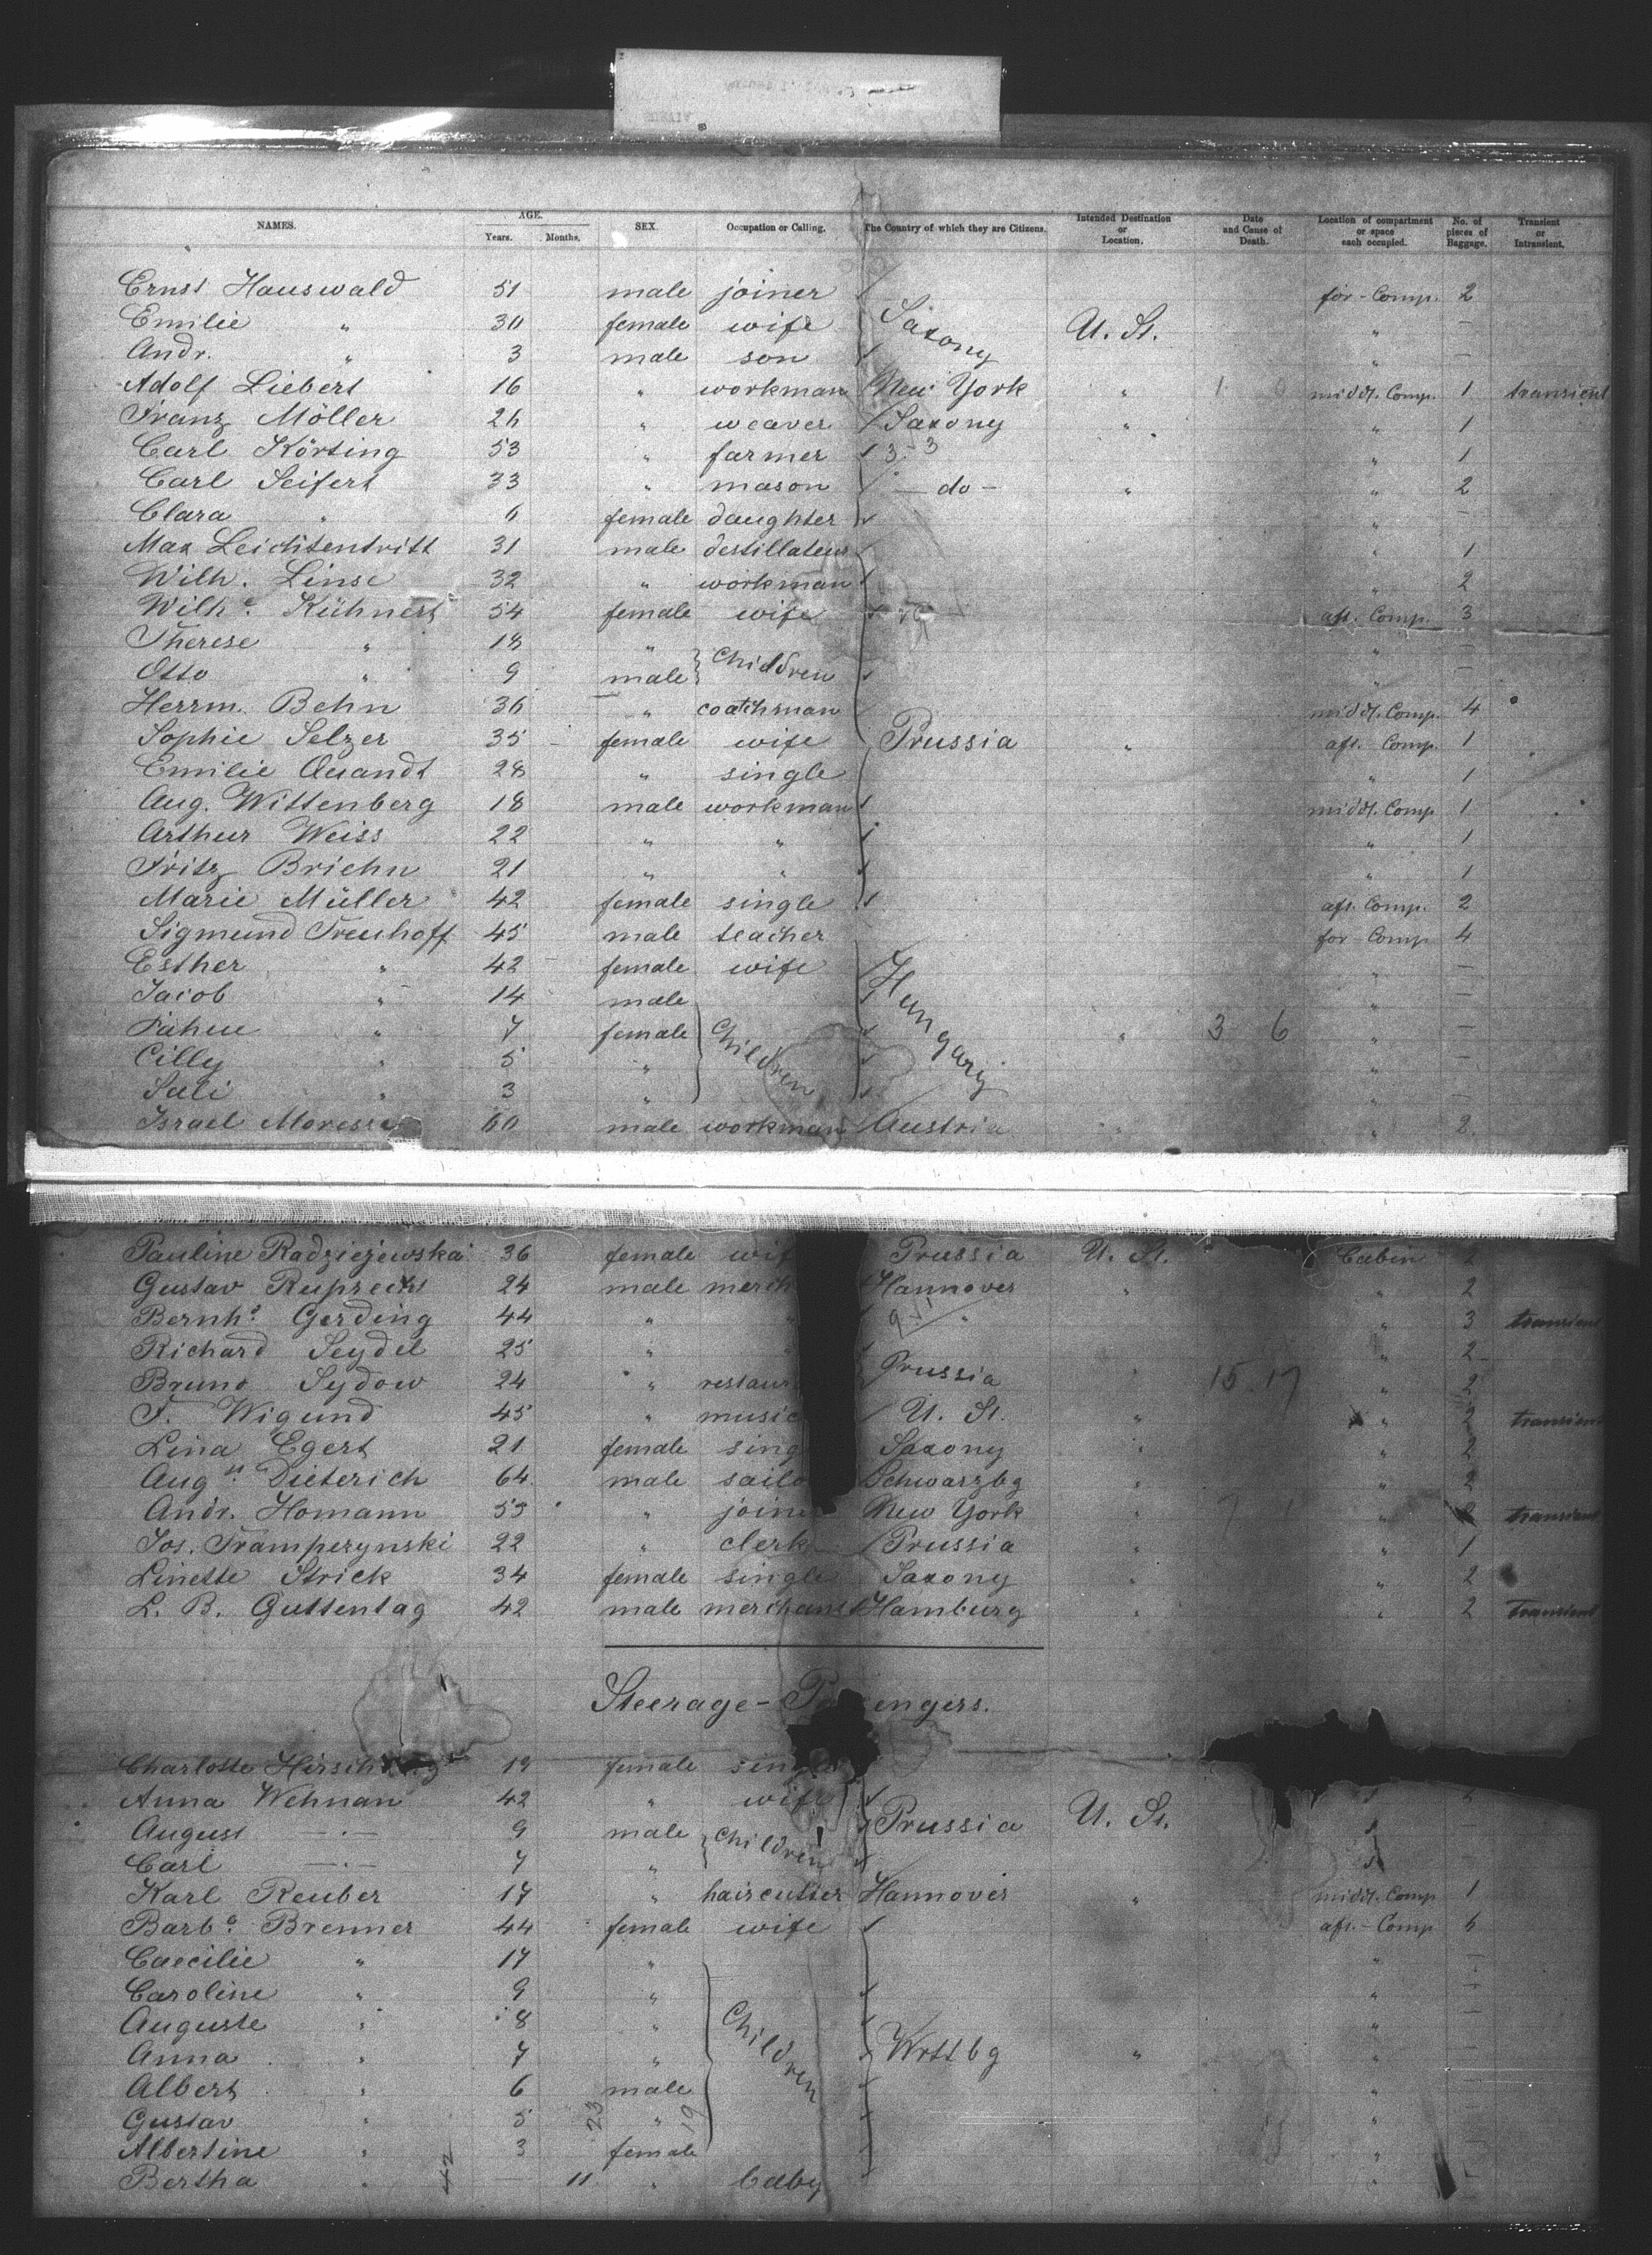 NAMES. AGE. Years. Months. SEX. Occupation or Calling. The Country of which they are Citizens. Intended Destination or Location. Date and Cause of Death. Location of compartment or space each occupied. No. of pieces of Baggage. Transient or Intransient.
Ernst Hauswald 51 male joiner for-Comp. 2
Emilie " 30 female wife Saxony U. St. " —
Andr. " 3 male son " —
Adolf Liebert 16 " workman New York " middl. Comp. 1 transient
Franz Möller 26 " weaver Saxony " " 1
Carl Körting 53 " farmer 3 3 " 1
Carl Seifert 33 " mason — do — " " 2
Clara " 6 female daughter " —
Max Leichtentritt 31 male destillateur " 1
Wilh. Linse 32 " workman " 2
Wilhe. Kühnert 54 female wife aft. Comp. 3
Therese " 18 " Children " —
Otto " 9 male " —
Herrm. Behn 36 " coatchman middl. Comp. 4
Sophie Selzer 35 female wife Prussia " aft. Comp. 1
Emilie Quandt 28 " single " 1
Aug. Wittenberg 18 male workman middl. Comp 1
Arthur Weiss 22 " " " 1
Fritz Briehn 21 " " " 1
Marie Müller 42 female single aft. Comp. 2
Sigmund Treuhoff 45 male teacher for-Comp 4
Esther " 42 female wife Hungary " —
Jacob " 14 male Children " —
" 7 female " 3 6 " —
Cilly " 5 " " —
Sali " 3 " " —
Israel 60 male workman Austria " " 2
Pauline Radziejewska 36 female wif Prussia U. St. Cabin 2
Gustav Ruprecht 24 male merch Hannover " " 2
Bernhd. Gerding 44 " " " " 3 transient
Richard Seydel 25 " " " 2
Bruno Sydow 24 " restaur Prussia " 15 17 " 2
F. Wigund 45 " music U. St. " " 2 transient
Lina Egert 21 female sing Saxony " " 2
Augst Dieterich 64 male sailo Schwarzbg " " 2
Andr. Homann 55 " joine New York " " 2 transient
Jos. Trampezynski 22 " clerk Prussia " " 1
Linette Strick 34 female single Saxony " " 2
L. B. Guttentag 42 male merchant Hamburg " " 2 transient
Steerage-Pa engers.
Charlotte 19 female single
Anna Wehnan 42 " wife Prussia U. St.
August —"— 9 male Children —
Carl —"— 7 " —
Karl Reuber 17 " haircutter Hannover " middl. Comp 1
Barba. Brenner 44 female wife aft.-Comp 6
Caecilie " 17 " Children " —
Caroline " 9 " " —
Auguste " 8 " " —
Anna " 7 " Wrttbg " " —
Albert " 6 male " —
Gustav " 5 23 " 19 " —
Albertine " 3 female " —
Bertha " 42 — 11 " baby " —